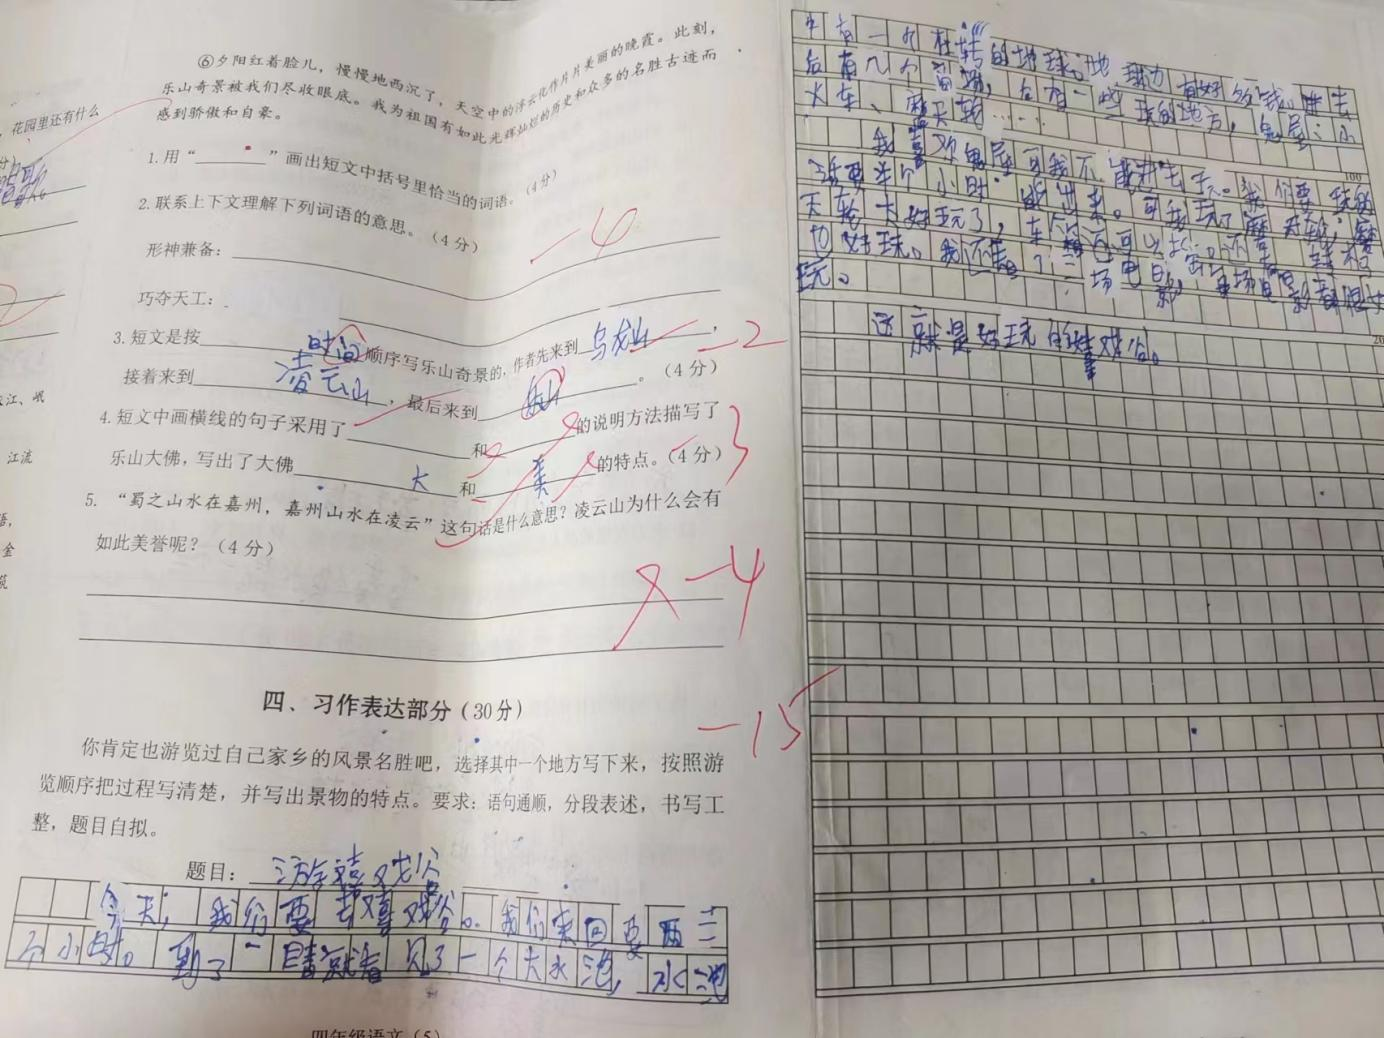 花园里还有什么
⑥夕阳红着脸儿，慢慢地西沉了，天空中的浮云化作片片美丽的晚霞。此刻，
乐山奇景被我们尽收眼底。我为祖国有如此光辉灿烂的历史和众多的名胜古迹而
感到骄傲和自豪。
1.用“ ”画出短文中括号里恰当的词语。（4分）
2.联系上下文理解下列词语的意思。（4分）
-4
形神兼备：
巧夺天工：
3.短文是按 时间 顺序写乐山奇景的，作者先来到 乌龙山 ，
-2
接着来到 凌云山 ，最后来到 乐山 。（4分）
4.短文中画横线的句子采用了 和 的说明方法描写了
乐山大佛，写出了大佛 大 和 美 的特点。（4分）
3
5.“蜀之山水在嘉州，嘉州山水在凌云”这句话是什么意思？凌云山为什么会有
如此美誉呢？（4分）
-4
江、岷
江流
语，
金
四、习作表达部分（30分）
-15
你肯定也游览过自己家乡的风景名胜吧，选择其中一个地方写下来，按照游
览顺序把过程写清楚，并写出景物的特点。要求：语句通顺，分段表述，书写工
整，题目自拟。
题目： 游喜戏谷
今天，我们要去嬉戏谷。我们来回要两三
个小时。到了一睛就看见了一个大水池，水池
四年级语文（5）
中有一个在转的地球。地球边有好多钱。进去
后有几个商城，后有一些玩的地方，鬼屋、小
火车、摩天轮……
我喜欢鬼屋可我不敢进去玩。我们要玩的
100
话要半个小时 出来。可我玩了摩天轮，摩
天轮太好玩了，车
也好玩。我还看了三场电影，
玩。
这就是好玩的嬉戏谷。
20